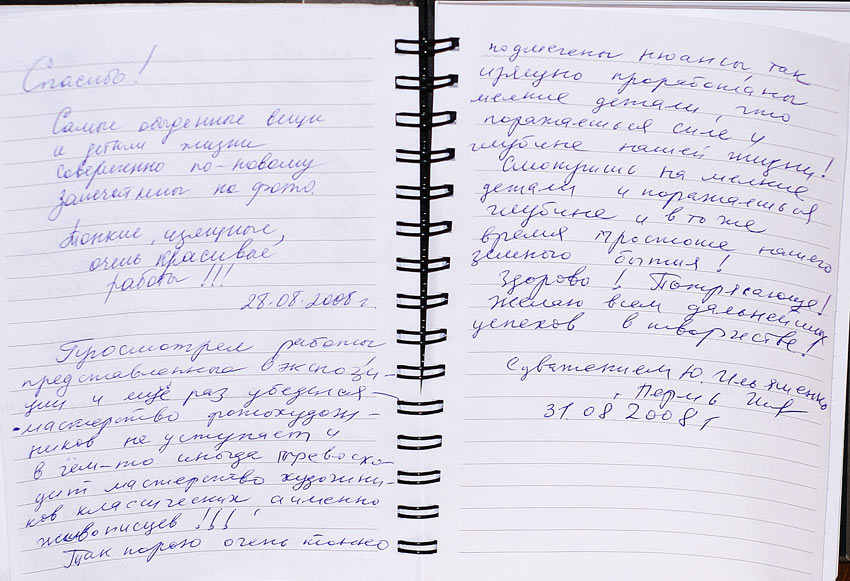 Спасибо!
Самые обыденные вещи
и детали жизни
совершенно по-новому
замечатлены на фото.
Тонкие, изящные,
очень красивые
работы!!!
28.08.2008 г.
Просмотрел работы
представленные в экспози-
ции и ещё раз убедился -
мастерство фотохудож-
ников не уступает и
в чём-то иногда превосхо-
дит мастерство художни-
ков классических а именно
живописцев!!!
Так порою очень тонко
подмечены нюансы, так
изящно проработаны
мелкие детали, что
поражаешься силе и
глубине нашей жизни!
Смотришь на мелкие
детали и поражаешься
глубине и в то же
время простоте нашего
земного бытия!
Здорово! Потрясающе!
Желаю всем дальнейших
успехов в творчестве!
С уважением Ю. Ильяшенко
г. Пермь
31.08 2008 г